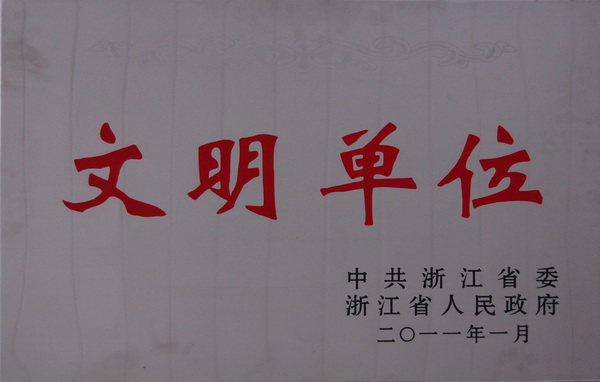 文明单位
中共浙江省委
浙江省人民政府
二〇一一年一月